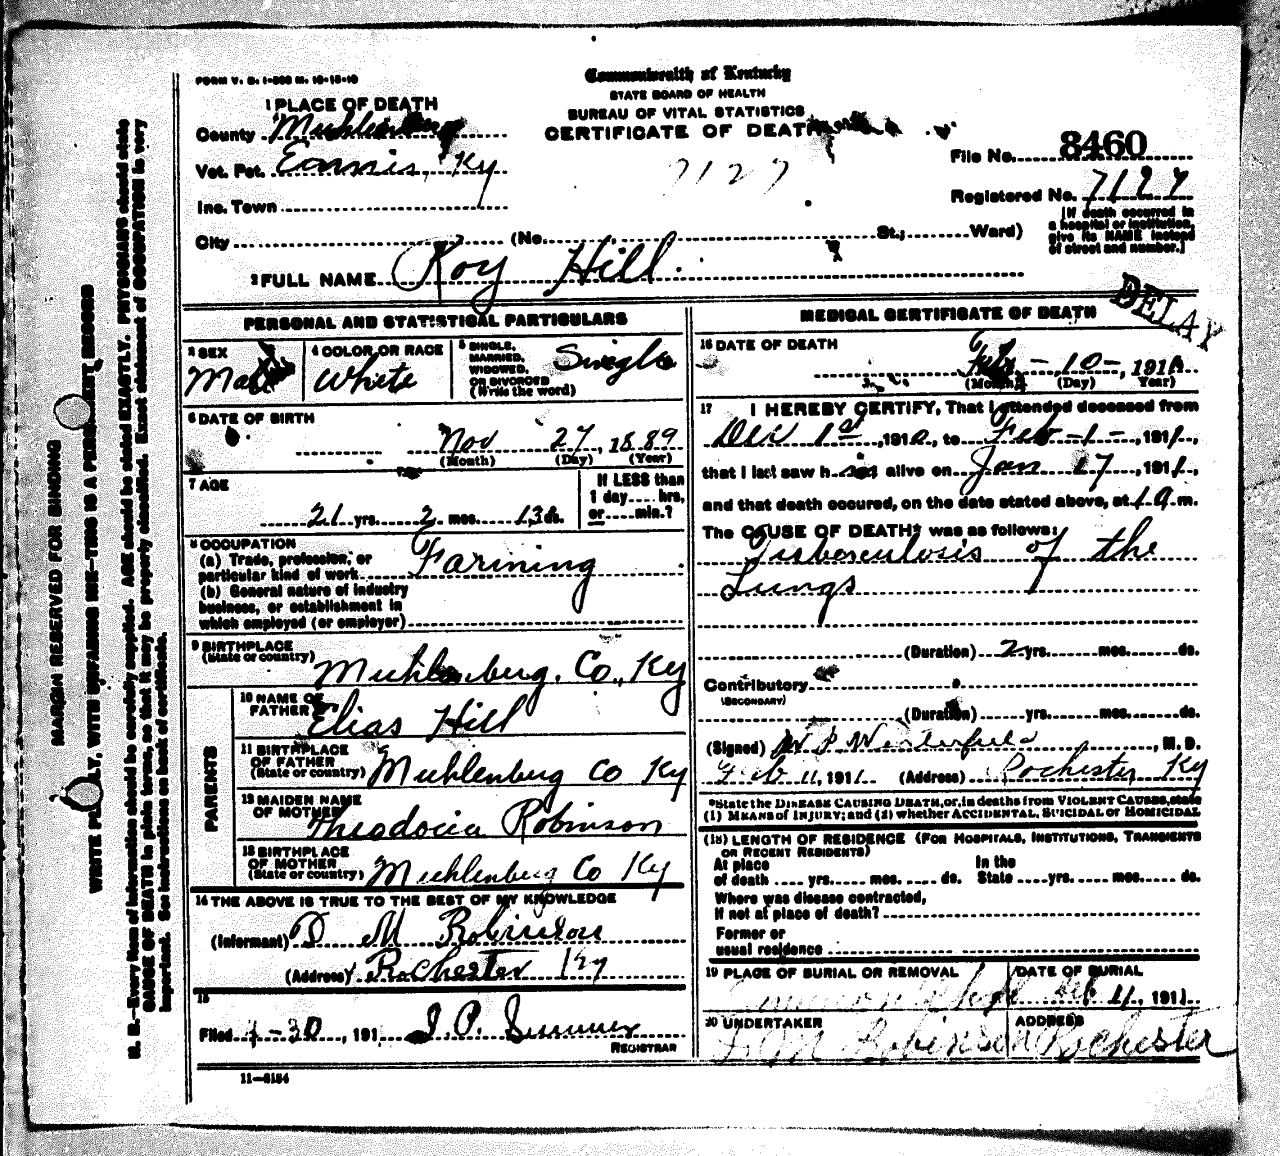 FORM V. S. 1-500 M. 10-18-10
Commonwealth of Kentucky
STATE BOARD OF HEALTH
BUREAU OF VITAL STATISTICS
CERTIFICATE OF DEATH
1 PLACE OF DEATH
County Muhlenberg
Vot. Pct. Ennis, Ky
Inc. Town
City (No. St.; Ward)
7127
File No. 8460
Registered No. 7127
[If death occurred in
a hospital or institution,
give its NAME instead
of street and number.]
2 FULL NAME Roy Hill
DELAY
PERSONAL AND STATISTICAL PARTICULARS
3 SEX
Male
4 COLOR OR RACE
White
5 SINGLE,
MARRIED,
WIDOWED,
OR DIVORCED
(Write the word)
Single
6 DATE OF BIRTH
Nov 27, 1889
(Month) (Day) (Year)
7 AGE
21 yrs. 2 mos. 13 ds.
If LESS than
1 day.... hrs,
or.....min.?
8 OCCUPATION
(a) Trade, profession, or
particular kind of work Farming
(b) General nature of industry
business, or establishment in
which employed (or employer)
9 BIRTHPLACE
(State or country) Muhlenburg, Co., Ky
PARENTS
10 NAME OF
FATHER Elias Hill
11 BIRTHPLACE
OF FATHER
(State or country) Muhlenburg Co Ky
12 MAIDEN NAME
OF MOTHER Theodocia Robinson
13 BIRTHPLACE
OF MOTHER
(State or country) Muhlenburg Co Ky
14 THE ABOVE IS TRUE TO THE BEST OF MY KNOWLEDGE
(Informant) D M Robinson
(Address) Rochester Ky
15
Filed 4-30, 191 J. P. Summer
REGISTRAR
11-5184
MEDICAL CERTIFICATE OF DEATH
16 DATE OF DEATH
Feb - 10 - , 1911
(Month) (Day) (Year)
17 I HEREBY CERTIFY, That I attended deceased from
Dec 1st, 1910, to Feb - 1 - , 1911,
that I last saw him alive on Jan 17, 1911,
and that death occured, on the date stated above, at 1 a m.
The CAUSE OF DEATH* was as follows:
Tuberculosis of the
Lungs
(Duration) 2 yrs. mos. ds.
Contributory
(SECONDARY)
(Duration) yrs. mos. ds.
(Signed) W P Winterfield, M. D.
Feb 11, 1911. (Address) Rochester Ky
*State the DISEASE CAUSING DEATH, or, in deaths from VIOLENT CAUSES, state
(1) MEANS OF INJURY; and (2) whether ACCIDENTAL, SUICIDAL or HOMICIDAL
(18) LENGTH OF RESIDENCE (FOR HOSPITALS, INSTITUTIONS, TRANSIENTS
OR RECENT RESIDENTS)
At place In the
of death .... yrs. .... mos. .... ds. State .... yrs. .... mos. .... ds.
Where was disease contracted,
if not at place of death?
Former or
usual residence
19 PLACE OF BURIAL OR REMOVAL
DATE OF BURIAL
Feb 11, 1911
20 UNDERTAKER
M Robinson
ADDRESS
Rochester
MARGIN RESERVED FOR BINDING
WRITE PLAINLY, WITH UNFADING INK—THIS IS A PERMANENT RECORD
N. B.—Every item of information should be carefully supplied. AGE should be stated EXACTLY. PHYSICIANS should state
CAUSE OF DEATH in plain terms, so that it may be properly classified. Exact statement of OCCUPATION is very
important. See instructions on back of certificate.